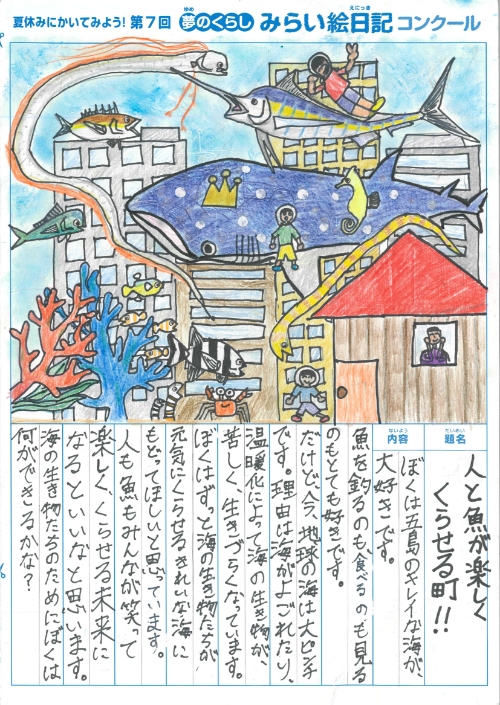 夏休みにかいてみよう!第7回夢のくらしみらい絵日記コンクール
ゆめ
えにっき
だいめい
題名
人と魚が楽しく
くらせる町!!
ないよう
内容
ぼくは五島のキレイな海が、
大好きです。
魚を釣るのも、食べるのも見る
のもとても好きです。
だけど今、地球の海は大ピンチ
です。理由は海がよごれたり、
温暖化によって海の生き物が、
苦しく生きづらくなっています。
ぼくはずっと海の生き物たちが
元気にくらせるきれいな海に
もどってほしいと思っています。
人も魚もみんなが笑って
楽しく、くらせる未来に
なるといいなと思います。
海の生き物たちのためにぼくは
何ができるかな?